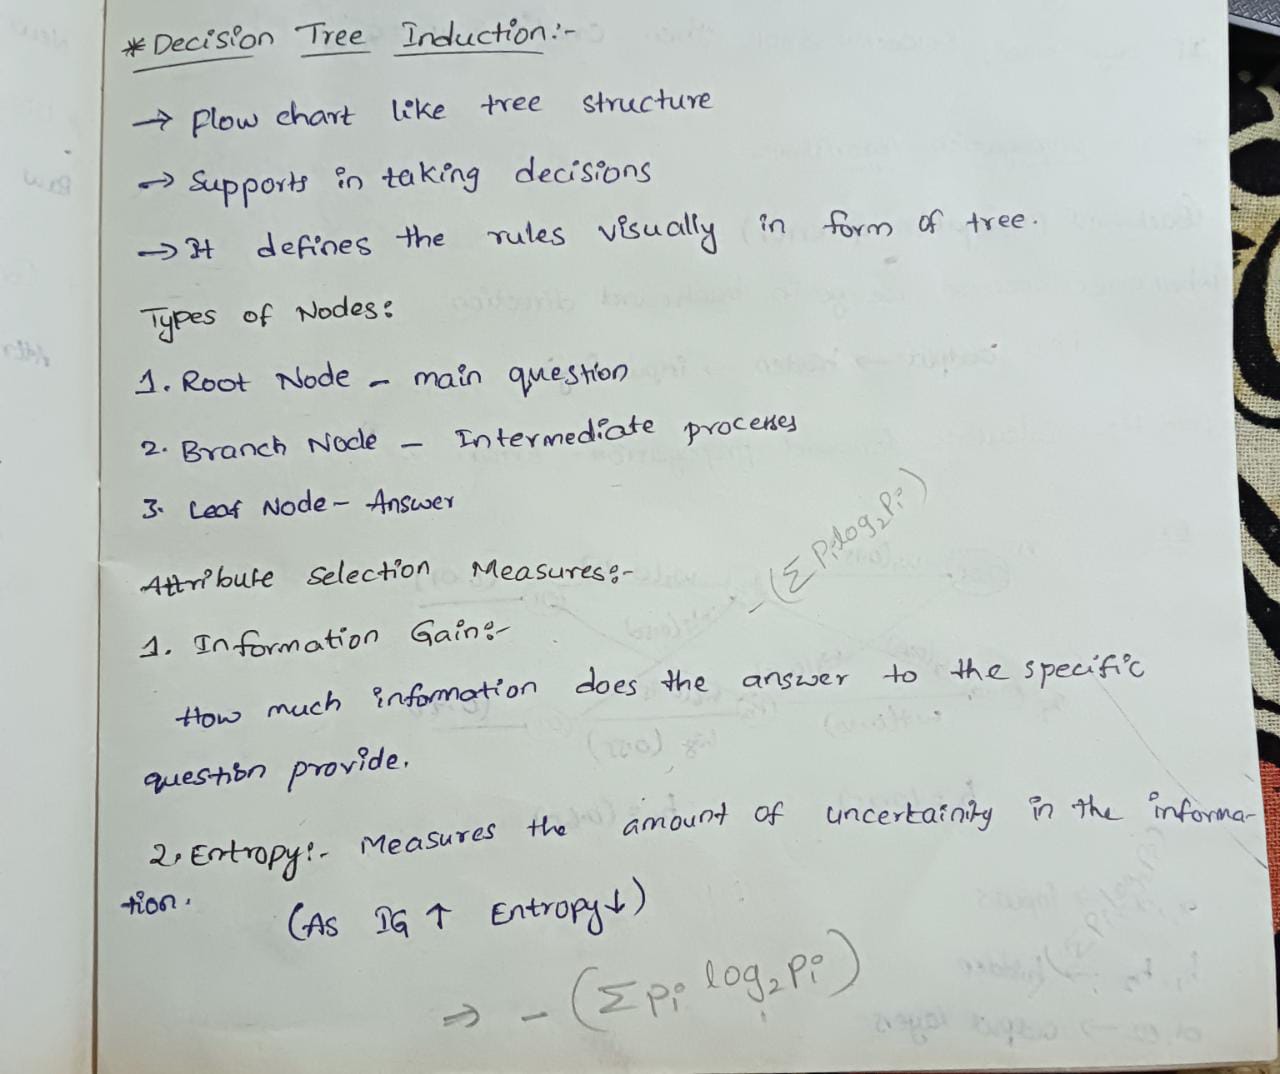 * Decision Tree Induction:-
→ Flow chart like tree structure
→ Supports in taking decisions
→ It defines the rules visually in form of tree.
Types of Nodes:
1. Root Node - main question
2. Branch Node - Intermediate processes
3. Leaf Node - Answer
-(Σ Pi log₂ Pi)
Attribute selection Measures:-
1. Information Gain:-
How much information does the answer to the specific
question provide.
2. Entropy:- Measures the amount of uncertainity in the informa-
tion.
(As IG ↑ Entropy ↓)
⇒ - (Σ Pi log₂ Pi)